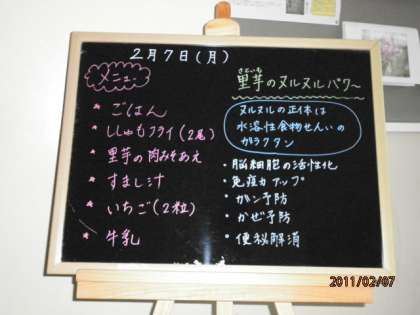 2月7日(月)
メニュー
* ごはん
* ししゃもフライ(2尾)
* 里芋の肉みそあえ
* すまし汁
* いちご(2粒)
* 牛乳
さといも
里芋のヌルヌルパワ〜
ヌルヌルの正体は
水溶性食物せんいの
ガラクタン
・脳細胞の活性化
・免疫力アップ
・ガン予防
・かぜ予防
・便秘解消
2011/02/07